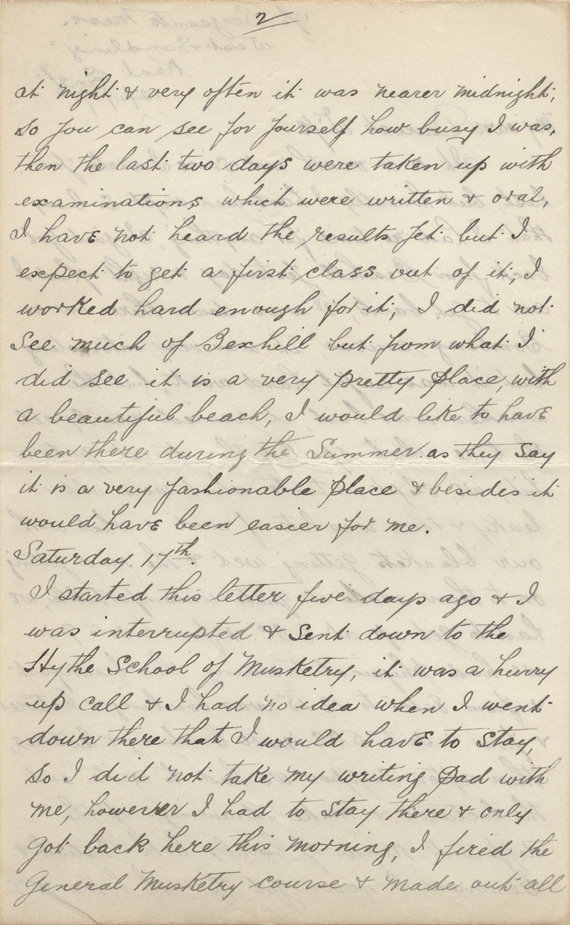 2
at night & very often it was nearer midnight,
so you can see for yourself how busy I was,
then the last two days were taken up with
examinations which were written & oral,
I have not heard the results yet but I
expect to get a first class out of it, I
worked hard enough for it, I did not
see much of Bexhill but from what I
did see it is a very pretty place, with
a beautiful beach, I would like to have
been there during the Summer as they say
it is a very fashionable place & besides it
would have been easier for me.
Saturday. 17th.
I started this letter five days ago & I
was interrupted & sent down to the
Hythe School of Musketry, it was a hurry
up call & I had no idea when I went
down there that I would have to stay,
so I did not take my writing pad with
me, however I had to stay there & only
got back here this morning, I fired the
General Musketry course & made out all